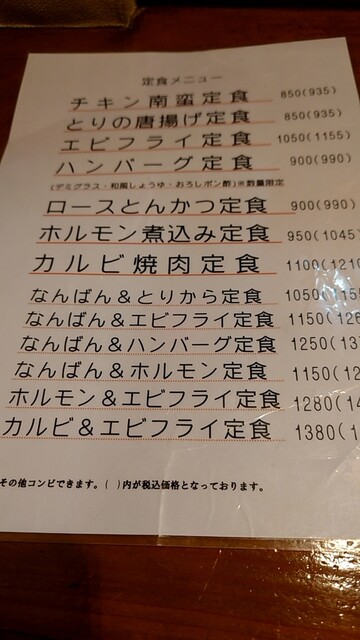 定食メニュー
チキン南蛮定食 850(935)
とりの唐揚げ定食 850(935)
エビフライ定食 1050(1155)
ハンバーグ定食 900(990)
(デミグラス・和風しょうゆ・おろしポン酢)※数量限定
ロースとんかつ定食 900(990)
ホルモン煮込み定食 950(1045)
カルビ焼肉定食 1100(1210
なんばん&とりから定食 1050(115
なんばん&エビフライ定食 1150(126
なんばん&ハンバーグ定食 1250(13
なんばん&ホルモン定食 1150(12
ホルモン&エビフライ定食 1280(14
カルビ&エビフライ定食 1380(1
その他コンビできます。( )内が税込価格となっております。